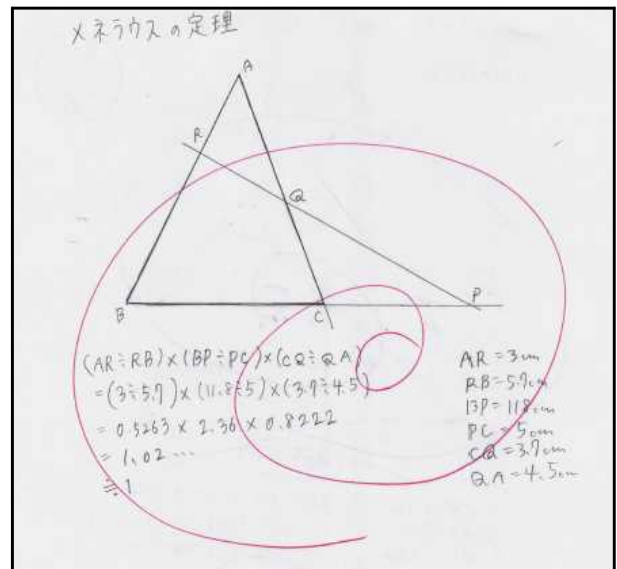 メネラウスの定理
A
R
Q
B
C
P
(AR÷RB)×(BP÷PC)×(CQ÷QA)
=(3÷5.7)×(11.8÷5)×(3.7÷4.5)
=0.5263×2.36×0.8222
=1.02...
≒1
AR=3cm
RB=5.7cm
BP=11.8cm
PC=5cm
CQ=3.7cm
QA=4.5cm